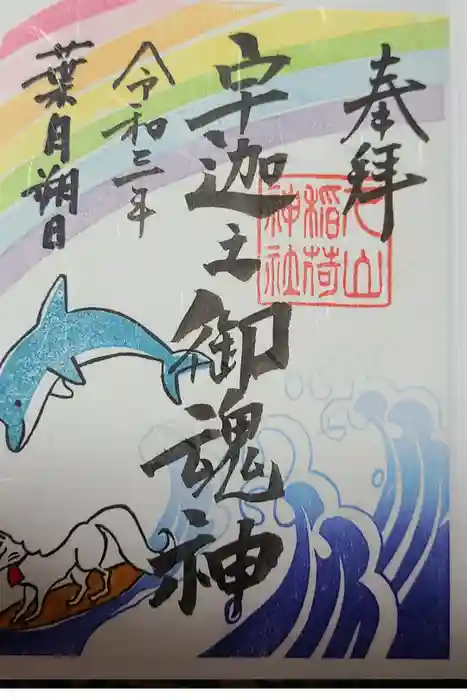 奉拝
宇迦之御魂神
令和三年
葉月朔日
稲荷
神社